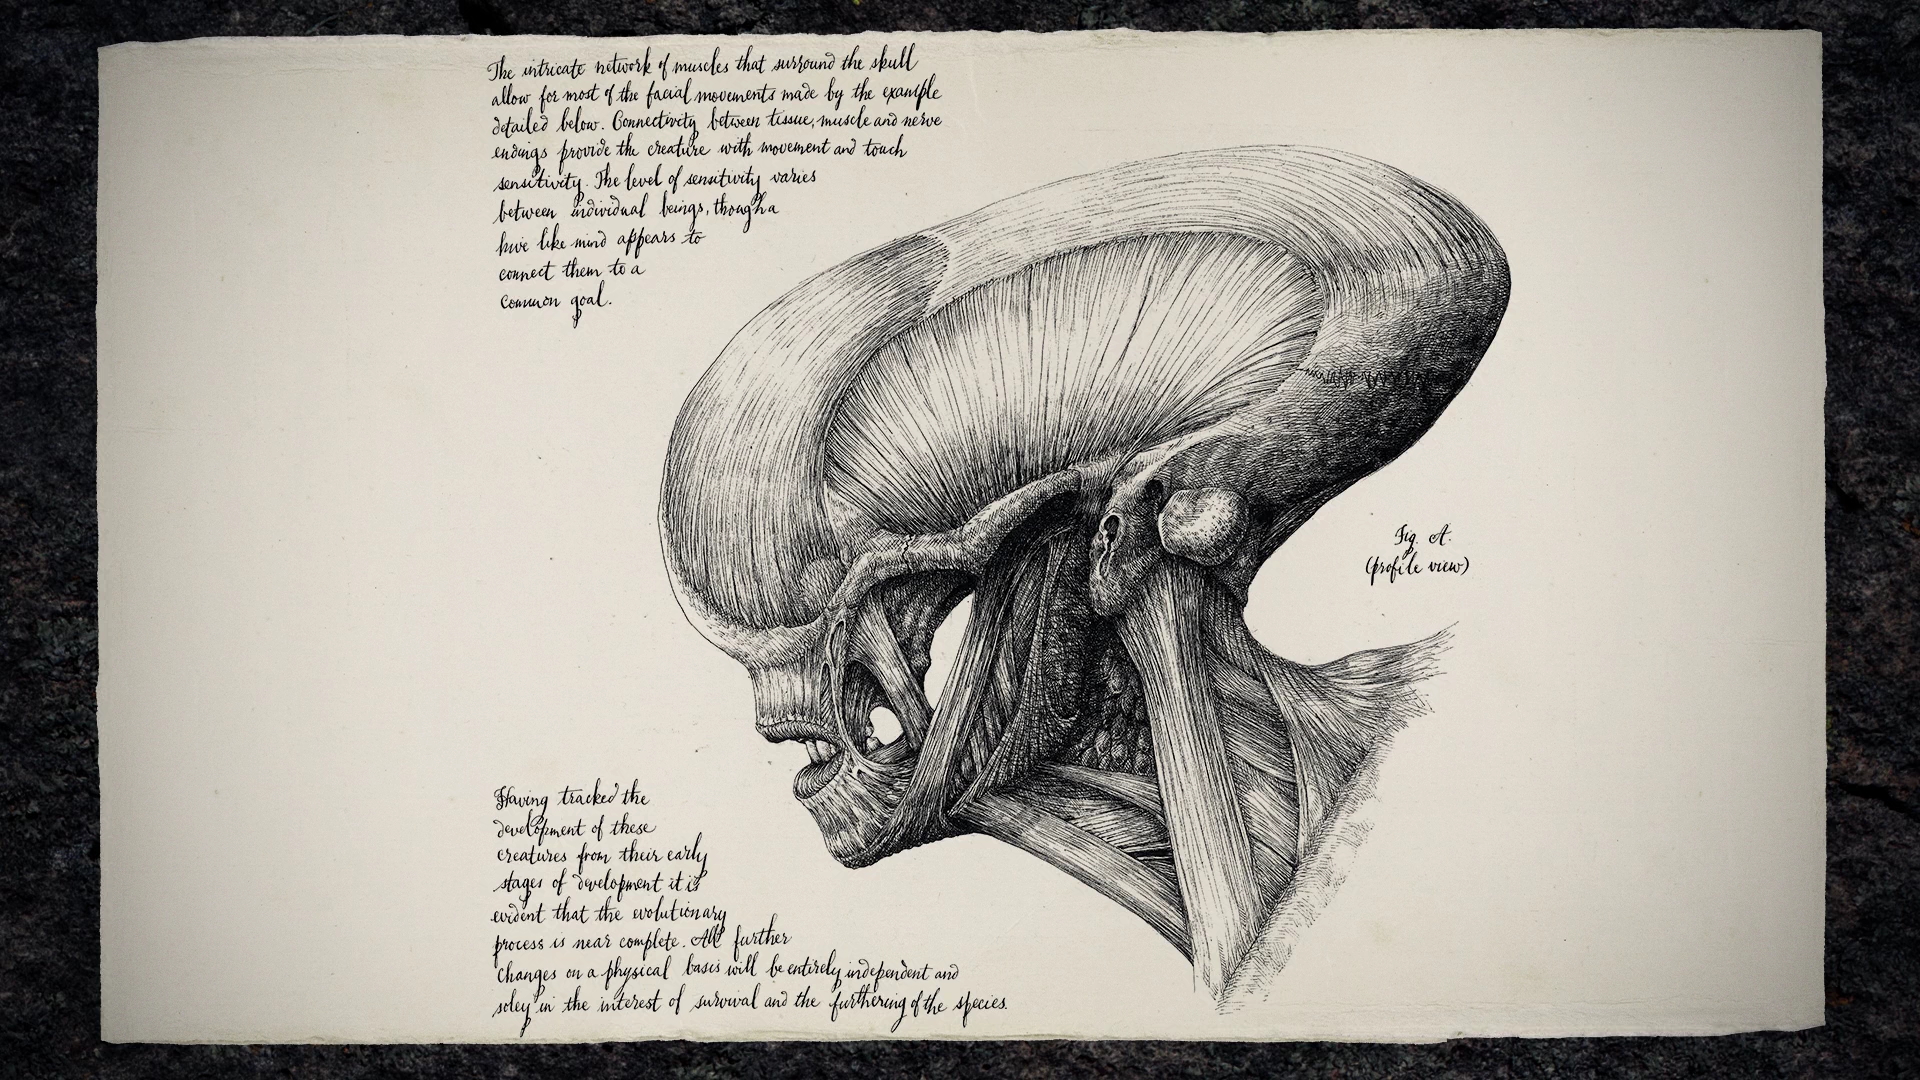 The intricate network of muscles that surround the skull
allow for most of the facial movements made by the example
detailed below. Connectivity between tissue, muscle and nerve
endings provide the creature with movement and touch
sensitivity. The level of sensitivity varies
between individual beings, though a
hive like mind appears to
connect them to a
common goal.
Fig. A.
(profile view)
Having tracked the
development of these
creatures from their early
stages of development it is
evident that the evolutionary
process is near complete. All further
changes on a physical basis will be entirely independent and
soley in the interest of survival and the furthering of the species.